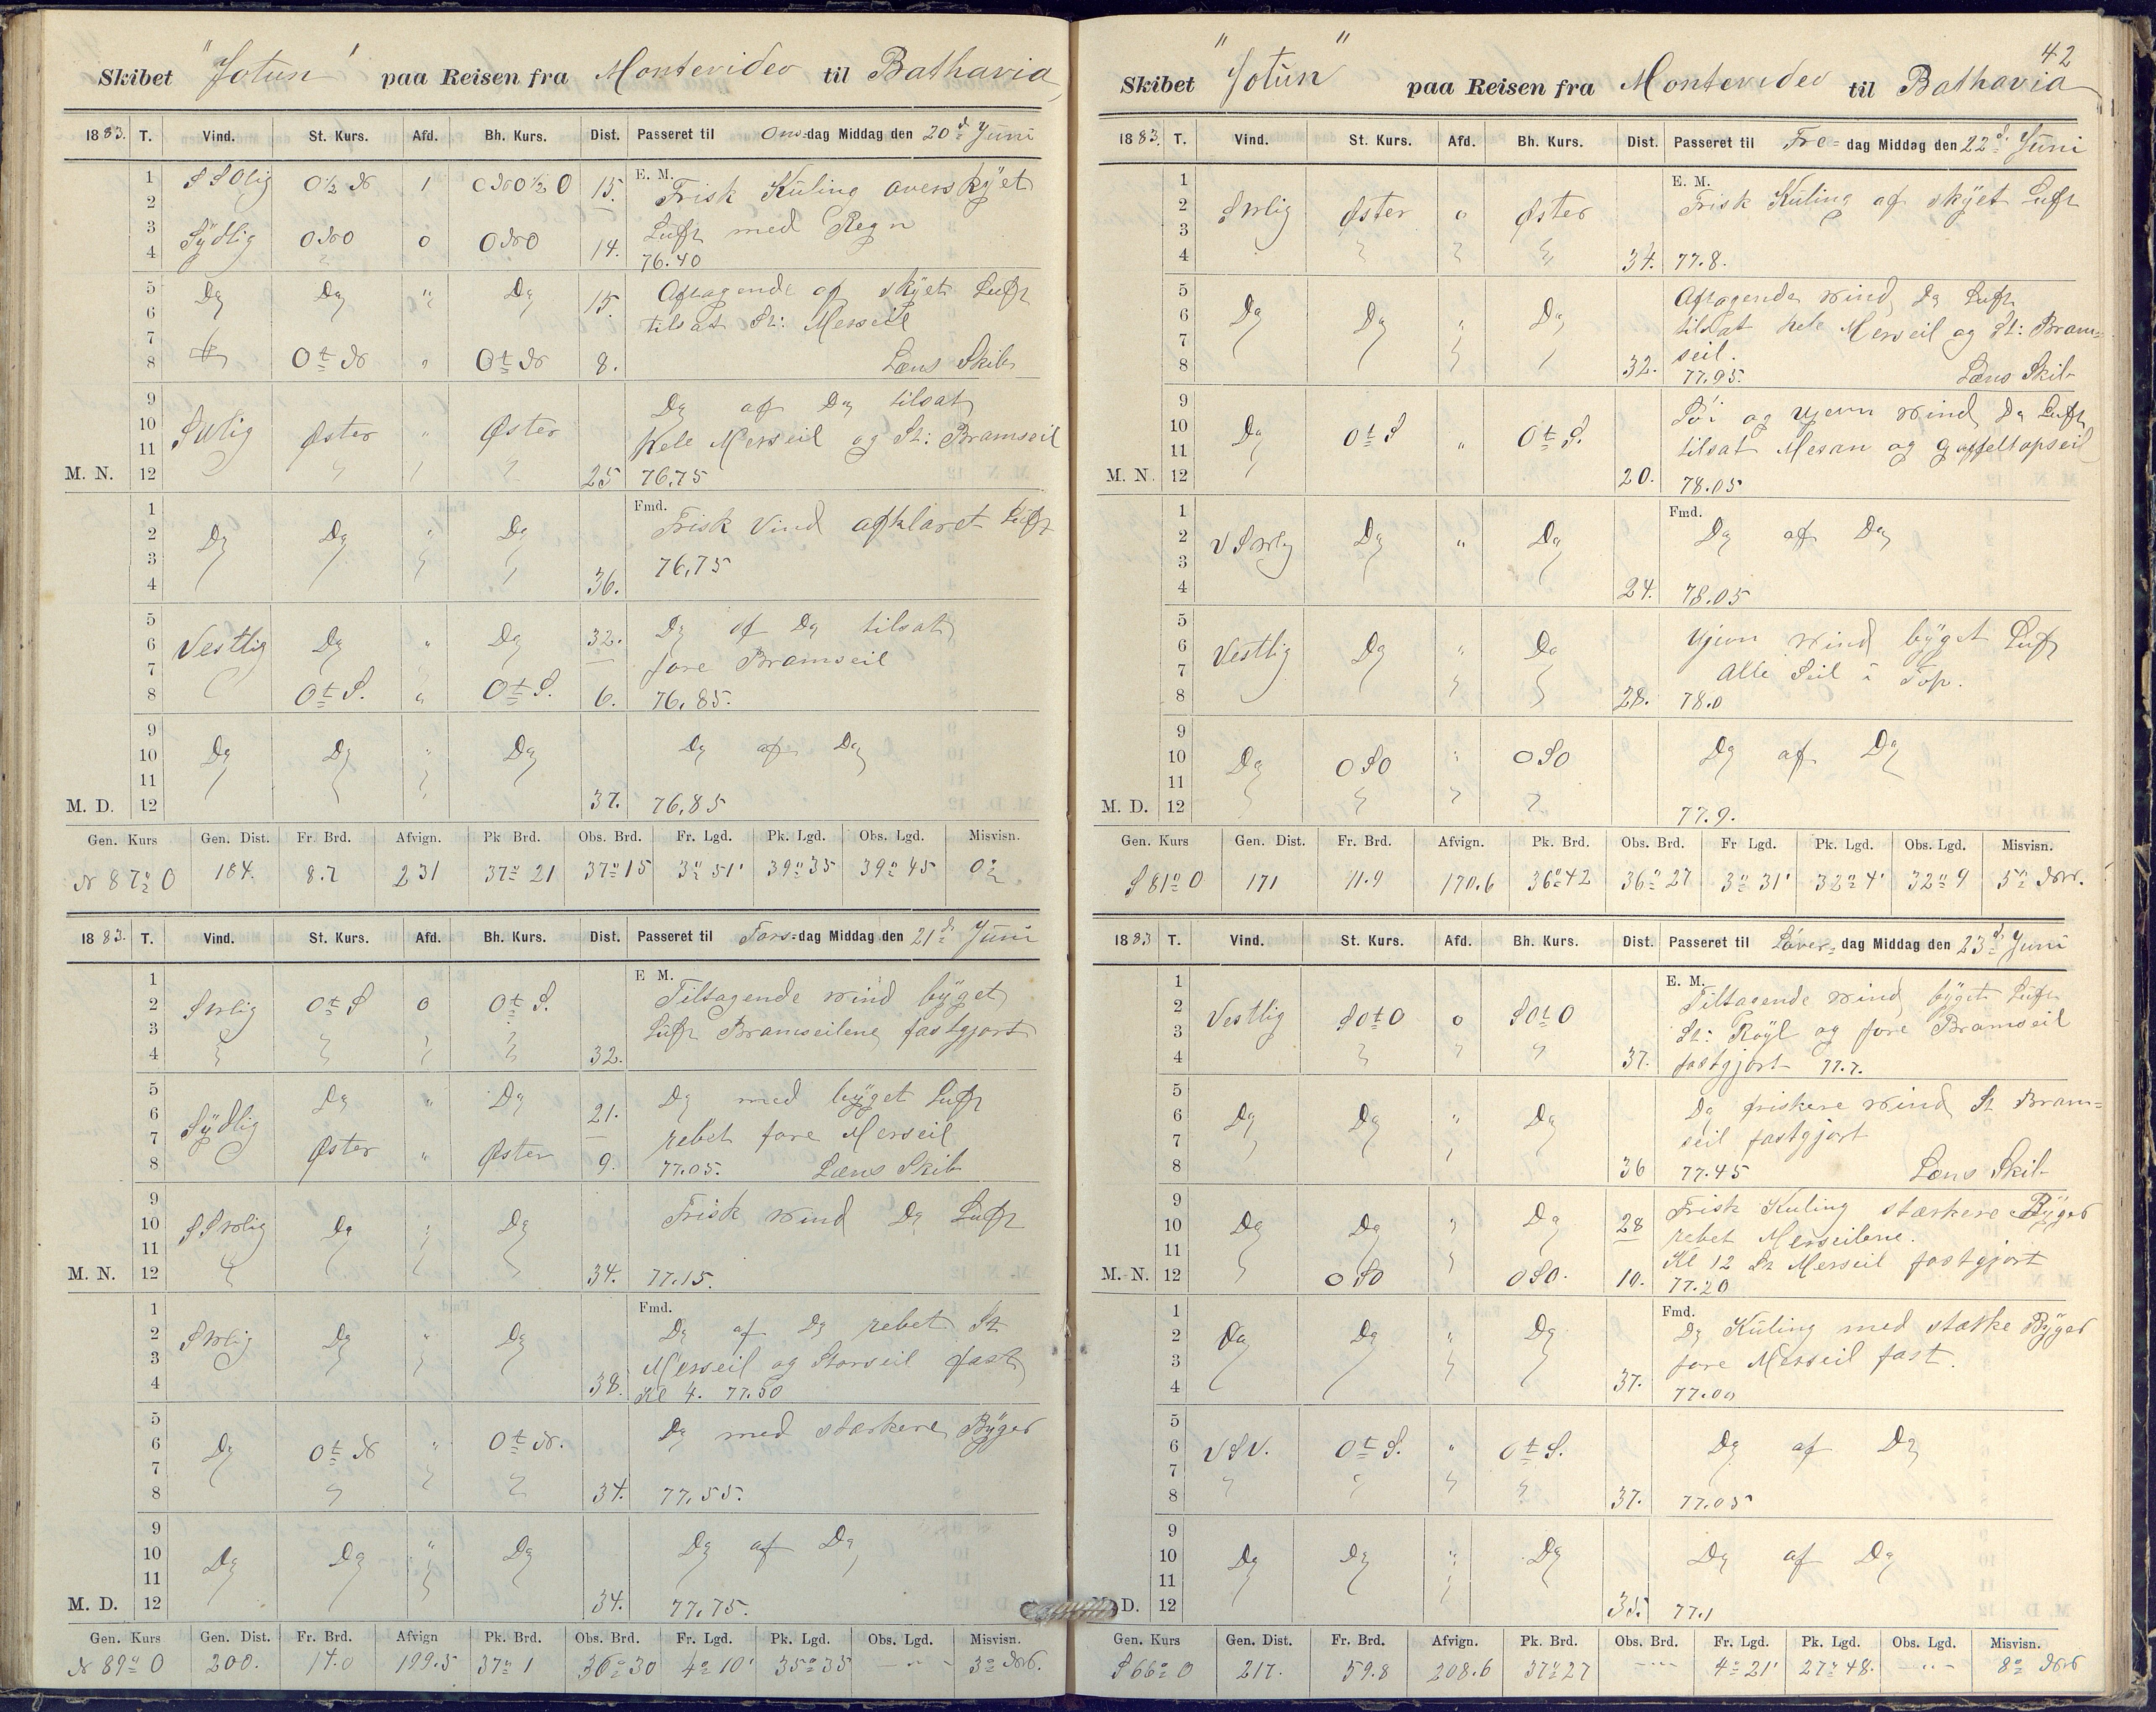 Skibet "Jotun" paa Reisen fra Montevideo til Bathavia
1883. T. Vind. St. Kurs. Afd. Bh. Kurs. Dist. Passeret til Ons=dag Middag den 20d Juni
1 SSOlig O½N 1 ONO½O 15. E. M. Frisk Kuling overskyet
2
3 Sydlig ONO 0 ONO Luft med Regn
4 14. 76.40
5 Do Do " Do 15. Aftagende af skyet Luft
6 tilsat St: Merseil
7
8 OtN " OtN 8. Lens Skib
9 Do af Do tilsat
10 SVlig Øster " Øster Hele Merseil og St: Bramseil
11
M. N. 12 25 76,75
1 Fmd. Frisk Vind afklaret Luft
2 Do Do " Do
3 76,75
4 36.
5 Do af Do tilsat
6 Vestlig Do " Do 32. fore Bramseil
7
8 OtS. " OtS. 6. 76,85.
9
10 Do Do " Do Do af Do
11
M. D. 12 37. 76,85
Gen. Kurs Gen. Dist. Fr. Brd. Afvign. Pk Brd. Obs. Brd. Fr. Lgd. Pk. Lgd. Obs. Lgd. Misvisn.
N 87° O 184. 8.7 231 37° 21 37° 15 3° 51' 39° 35 39° 45 0°
1883. T. Vind. St. Kurs. Afd. Bh. Kurs. Dist. Passeret til Tors=dag Middag den 21d Juni
1 E M. Tiltagende wind byget
2 SWlig OtS 0 OtS. Luft Bramseilene fastgjort
3
4 32.
5 Do " Do Do med byget Luft
6 Sydlig 21. rebet fore Merseil
7 Øster " Øster
8 9. 77.05. Lens Skib
9 Frisk wind Do Luft
10 SSWlig Do " Do
11
M. N. 12 34. 77.15.
1 Fmd. Do af Do rebet St
2 SWlig Do " Do Merseil og Storseil fast
3
4 38. Kl 4. 77.50
5 Do med starkere Byger
6 Do OtN " OtN.
7
8 34. 77,55.
9 Do af Do
10 Do Do " Do
11
M. D. 12 34. 77,75.
Gen. Kurs Gen. Dist. Fr. Brd. Afvign Pk. Brd. Obs. Brd. Fr. Lgd. Pk. Lgd. Obs. Lgd. Misvisn.
N 89° O 200. 14.0 199.5 37° 1 36° 30 4° 10' 35° 35 - " - 3° NW.
42
Skibet "Jotun" paa Reisen fra Montevideo til Bathavia
1883. T. Vind. St. Kurs. Afd. Bh. Kurs. Dist. Passeret til Fre=dag Middag den 22d. Juni
1 E. M. Frisk Kuling af skyet Luft
2 SWlig Øster 0 Øster
3
4 34. 77.8.
5 Aftagende wind Do Luft
6 Do Do " Do tilsat hele Merseil og St: Bram=
7 seil.
8 32. 77,95. Lens Skib
9 Løi og ujevn wind Do Luft
10 Do OtS " OtS. tilsat Mesan og Gaffeltopseil
11
M. N. 12 20. 78.05
1 Fmd. Do af Do
2 VSWlig Do " Do
3
4 24. 78.05
5 Ujevn wind byget Luft
6 Vestlig Do " Do Alle Seil i Top.
7
8 28. 78.0
9
10 Do OSO " OSO Do af Do
11
M. D. 12 77.9.
Gen. Kurs Gen. Dist. Fr. Brd. Afvign. Pk. Brd. Obs. Brd. Fr Lgd. Pk. Lgd. Obs. Lgd. Misvisn.
S 81° O 171 11.9 170.6 36° 42 36° 27 3° 31' 32° 4' 32° 9 5° NW.
1883 T. Vind. St. Kurs. Afd. Bh. Kurs. Dist. Passeret til Løver=dag Middag den 23d. Juni
1 E. M. Tiltagende wind byget Luft
2 Vestlig SOtO 0 SOtO St: Røyl og fore Bramseil
3
4 37. fastgjort 77.7.
5 Do friskere wind St Bram=
6 Do Do " Do seil fastgjort
7
8 36 77.45 Lens Skib
9 Frisk Kuling starkere Byger
10 Do Do " Do 28 rebet Merseilene.
11 Kl 12 St Merseil fastgjort
M. N. 12 OSO OSO. 10. 77.20
1 Fmd. Do Kuling med starke Byger
2 Do Do " Do fore Merseil fast.
3
4 37. 77.00
5
6 VSV. OtS. " OtS. Do af Do
7
8 37. 77.05
9
10 Do Do " Do Do af Do
11
D. 12 35. 77.1
Gen. Kurs Gen. Dist. Fr. Brd. Afvign. Pk. Brd. Obs. Brd. Fr. Lgd. Pk. Lgd. Obs. Lgd. Misvisn.
S 66° O 217. 59.8 208.6 37° 27 - " - 4° 21' 27° 48. - " - 8° NW